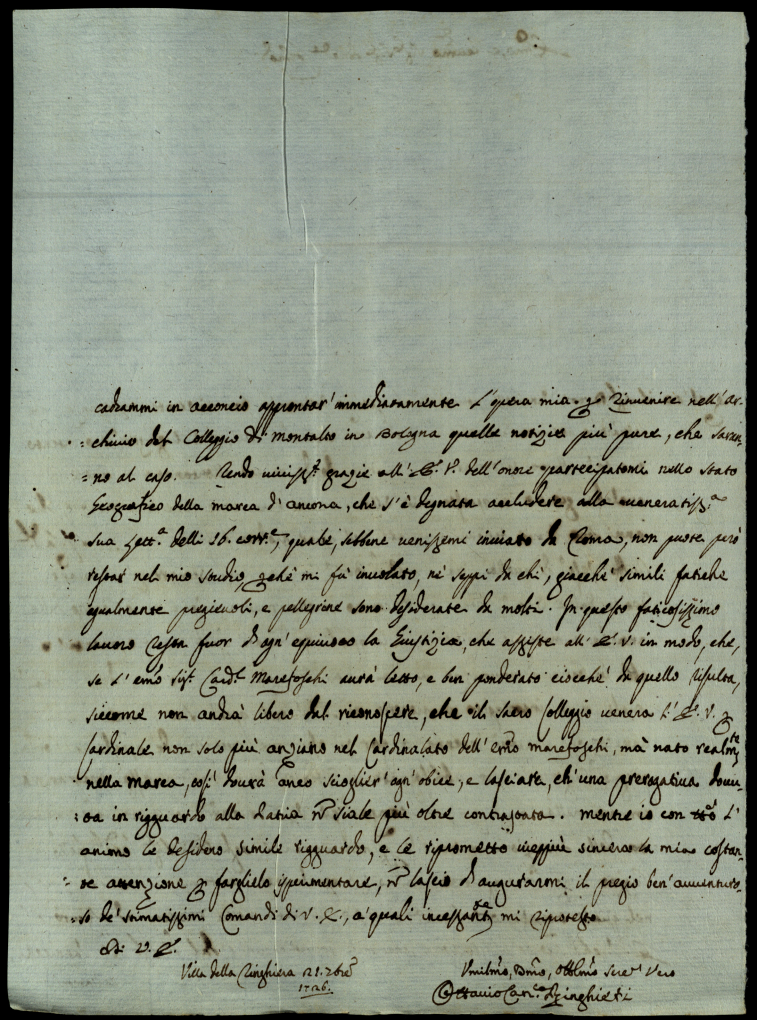 cadrammi in acconcio approntar' immediatamente l'opera mia p rinvenire nell'Ar-
=chivio del Colleggio di Montalto in Bologna quelle notizie più pure, che saran-
=no al caso. Rendo vivissme grazie all'E. V. dell'onore partecipatomi nello Stato
Geografico della marca d'Ancona, che s'è degnata accludere alla veneratissa
sua Letta delli 16. corre, quale, sebbene venissemi inviato da Roma, non puote però
restar nel mio studio, pchè mi fù involato, nè seppi da chi, giacchè simili fatiche
egualmente pregievoli, e pellegrine sono desiderate da molti. In questo faticosissimo
lavoro resta fuor di ogn'equivoco la Giustizia, che assiste all'E. V. in modo, che,
se l'Emo Sigr Cardl Marefoschi avrà letto, e ben ponderato ciocchè da quello risulta,
siccome non andrà libero dal riconoscere, che il sacro Colleggio venera l'E. V. p
Cardinale non solo più anziano nel Cardinalato dell'Emo Marefoschi, mà nato realmte
nella marca, così dovrà anco scioglier' ogn'obice, e lasciare, ch'una prerogativa dovu-
=ta in rigguardo alla Patria n siale più oltre contrastata. Mentre io con tto l'
animo le desidero simile rigguardo, e le riprometto vieppiù sincera la mia costan-
=te attenzione p farglielo sperimentare, n lascio d'augurarmi il pregio ben'avventuro-
=so de' stimatissimi Comandi di V. E., a' quali incessante mi riprotesto
Di V. E.
Villa della Ringhiera 21. 7bre
1776.
Umilmo, Dmo, Obblmo Serve Vero
Ottavio Can.co Ringhieri